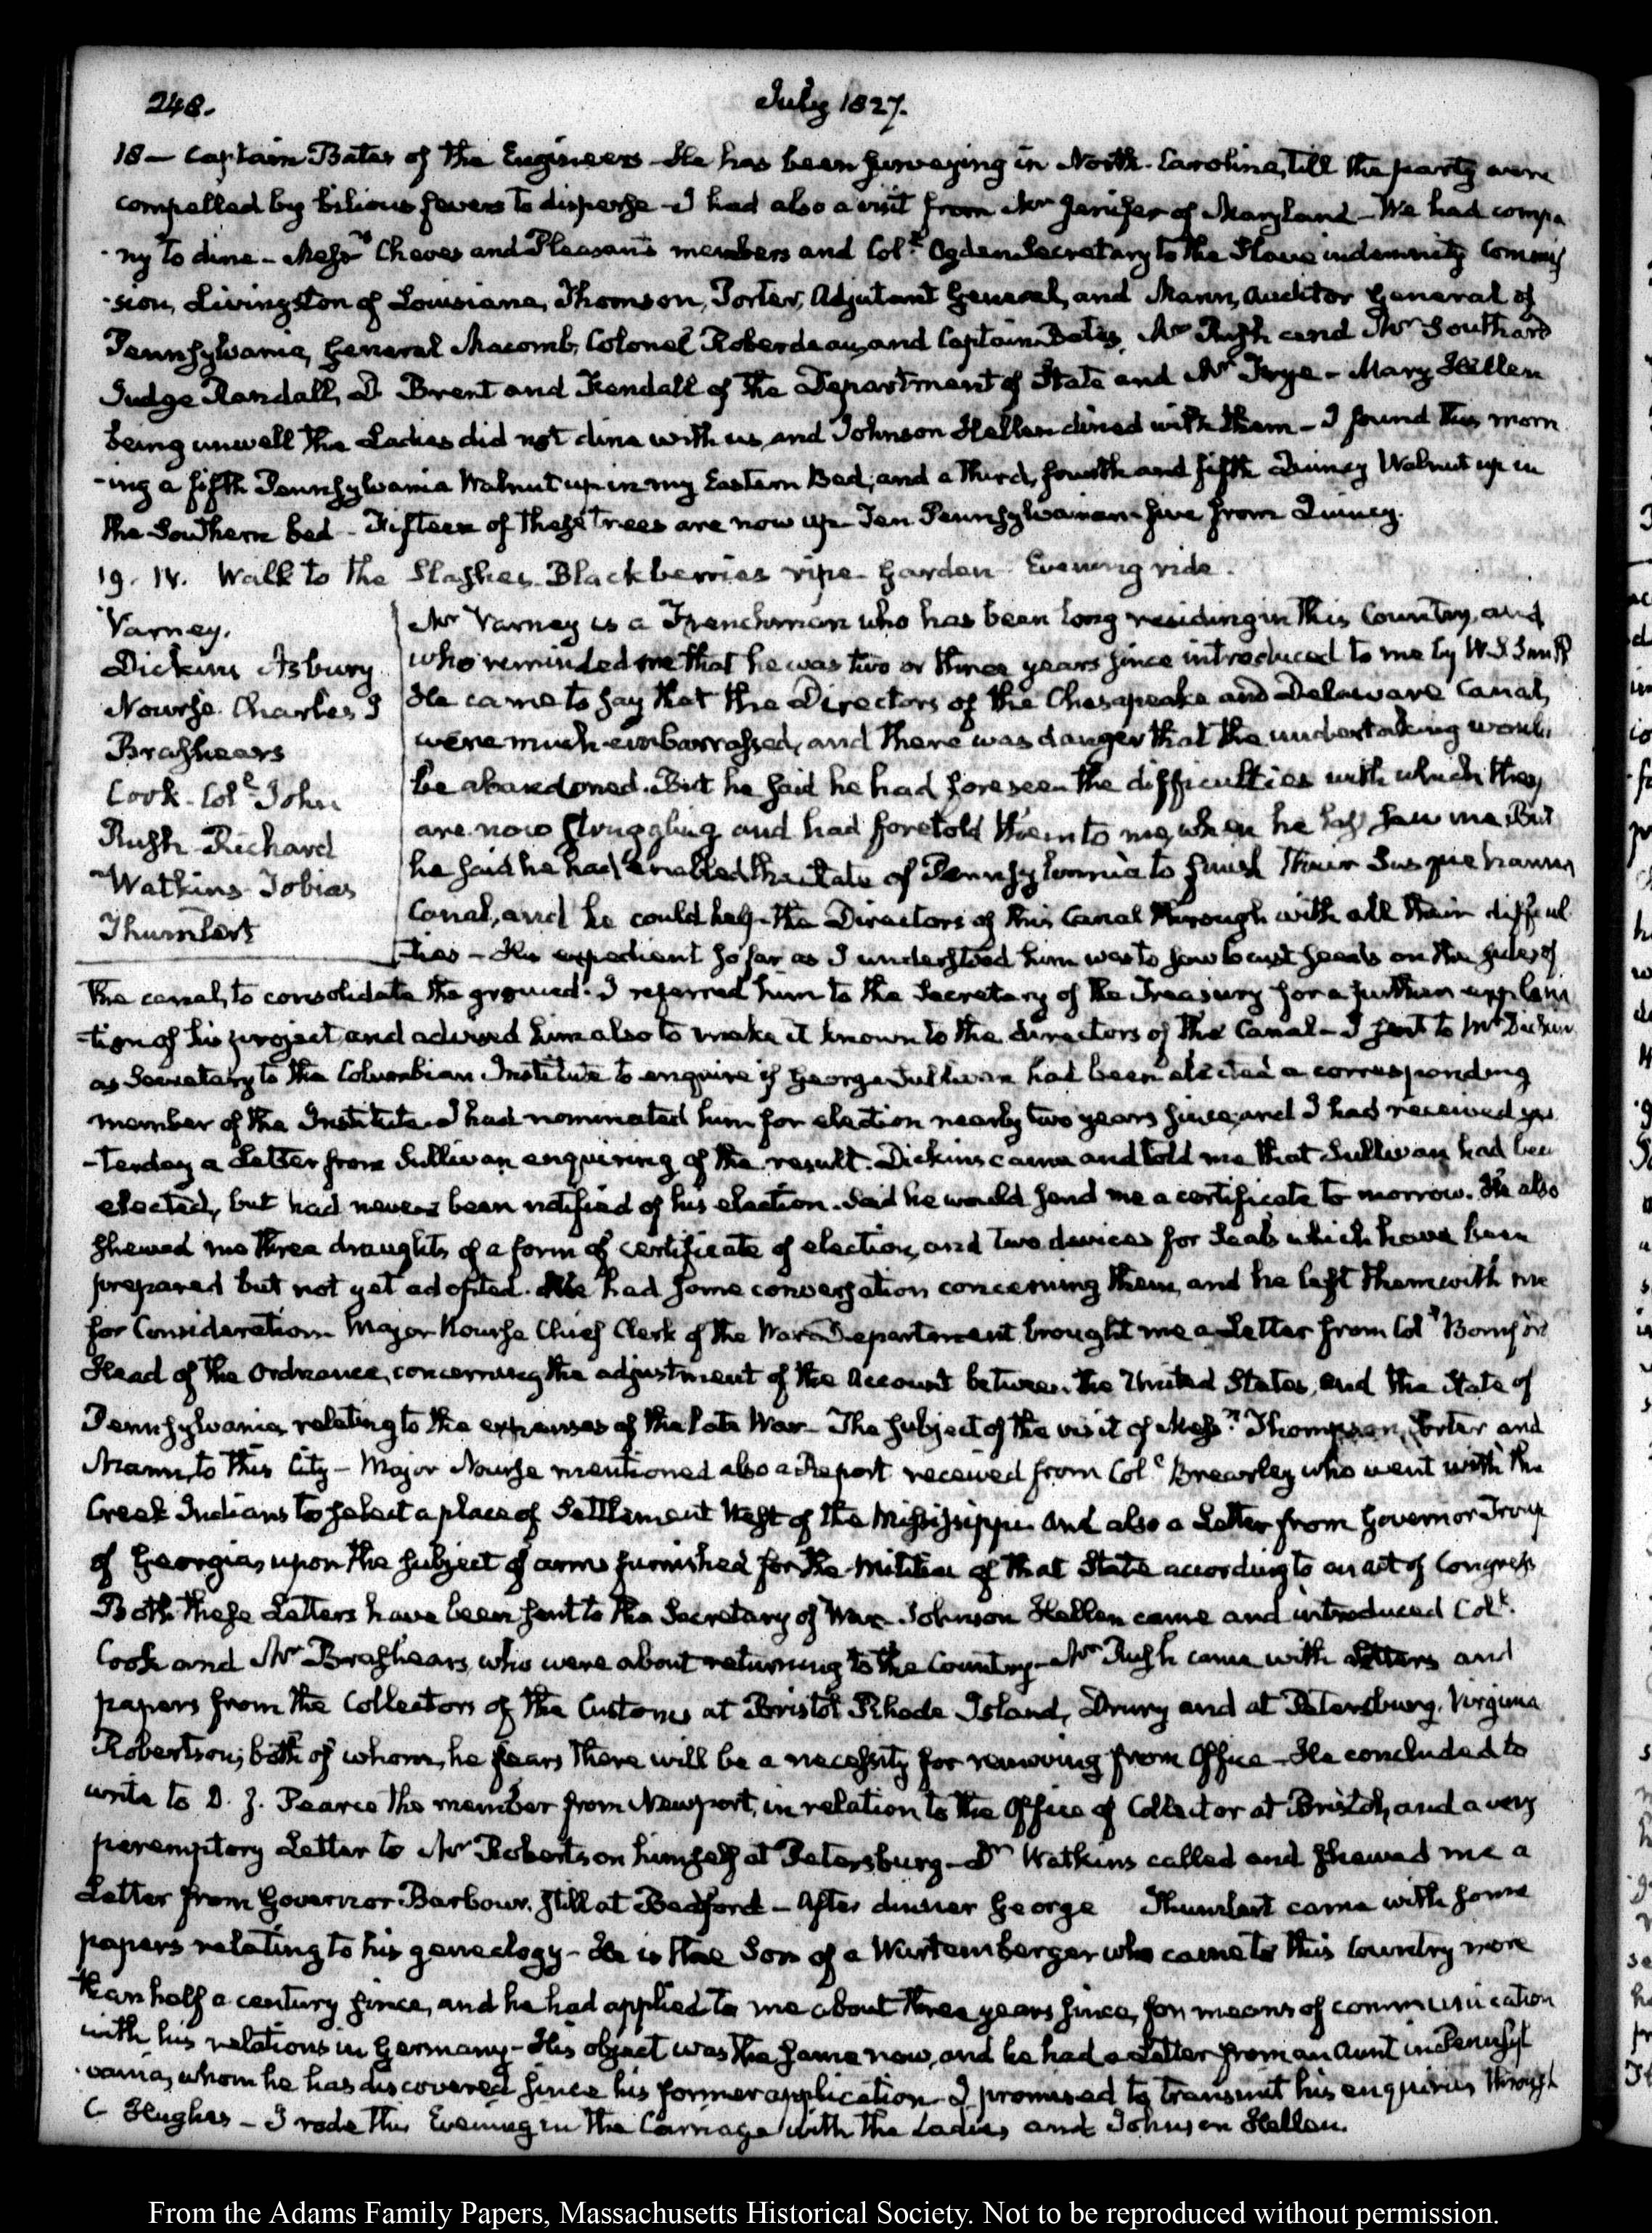 248.
July 1827.
18 — Captain Bates of the Engineers — He has been surveying in North-Carolina, till the party were
compelled by bilious fevers to disperse — I had also a visit from Mr Jenifer of Maryland — We had compa
-ny to dine — Messrs Cheves and Pleasants members and Coll Ogden Secretary to the Slave indemnity Commis
-sion, Livingston of Louisiana, Thomson, Porter, Adjutant General, and Mann, Auditor General of
Pennsylvania, General Macomb, Colonel Roberdeau, and Captain Bates, Mr Rush and Mr Southard
Judge Randall, D Brent and Kendall of the Department of State and Mr Frye — Mary Hellen
being unwell the Ladies did not dine with us, and Johnson Hellen dined with them — I found this morn
-ing a fifth Pennsylvania Walnut up in my Eastern Bed; and a third, fourth and fifth Quincy Walnut up in
the Southern bed — Fifteen of these trees are now up Ten Pennsylvanian five from Quincy.
19. IV. Walk to the Slashes. Blackberries ripe — Garden — Evening ride.
Varney.
Dickins Asbury
Nourse. Charles J
Brashears
Cook. Coll John
Rush Richard
Watkins Tobias
Thumlert
Mr Varney is a Frenchman who has been long residing in this Country, and
who reminded me that he was two or three years since introduced to me by W. S. Smith
He came to say that the Directors of the Chesapeake and Delaware Canal,
were much embarrassed, and there was danger that the undertaking would
be abandoned. But he said he had foreseen the difficulties with which they
are now struggling and had foretold them to me, when he last saw me. But
he said he had enabled the State of Pennsylvania to finish their Susquehanna
Canal, and he could help the Directors of this Canal through with all their difficul
-ties — His expedient so far as I understood him was to sow locust seeds on the sides of
the canal, to consolidate the ground. I referred him to the Secretary of the Treasury for a further explana
-tion of his project, and advised him also to make it known to the directors of the Canal — I sent to Mr Dickins
as Secretary to the Columbian Institute to enquire if George Sullivan had been elected a corresponding
member of the Institute. I had nominated him for election nearly two years since, and I had received yes
-terday a Letter from Sullivan enquiring of the result. Dickins came and told me that Sullivan had been
elected, but had never been notified of his election. Said he would send me a certificate to morrow. He also
shewed me three draughts of a form of certificate of election, and two devices for Seals which have been
prepared but not yet adopted. We had some conversation concerning them, and he left them with me
for Consideration. Major Nourse Chief Clerk of the War Department brought me a Letter from Coll Bomford
Head of the Ordnance, concerning the adjustment of the Account between the United States, and the State of
Pennsylvania, relating to the expenses of the late War — The subject of the visit of Messrs Thompson, Porter and
Mann, to this City — Major Nourse mentioned also a Report received from Coll Brearley who went with the
Creek Indians to select a place of Settlement West of the Mississippi. And also a Letter from Governor Troup
of Georgia, upon the subject of arms furnished for the Militia of that State according to an act of Congress
Both these Letters have been sent to the Secretary of War. Johnson Hellen came and introduced Coll
Cook and Mr Brashears, who were about returning to the Country. Mr Rush came with letters and
papers from the Collectors of the Customs at Bristol Rhode Island, Drury and at Petersburg, Virginia
Robertson; both of whom, he fears there will be a necessity for removing from Office — He concluded to
write to D. J. Pearce the member from Newport, in relation to the Office of Collector at Bristol, and a very
peremptory Letter to Mr Robertson himself at Petersburg — Dr Watkins called and shewed me a
Letter from Governor Barbour, still at Bedford — After dinner George Thumlert came with some
papers relating to his genealogy — He is the Son of a Wurtemberger who came to this Country more
than half a century since, and he had applied to me about three years since, for means of communication
with his relations in Germany — His object was the same now, and he had a Letter from an Aunt in Pennsyl
-vania, whom he has discovered since his former application. I promised to transmit his enquiries through
C Hughes — I rode this Evening in the Carriage with the Ladies and Johnson Hellen.
From the Adams Family Papers, Massachusetts Historical Society. Not to be reproduced without permission.